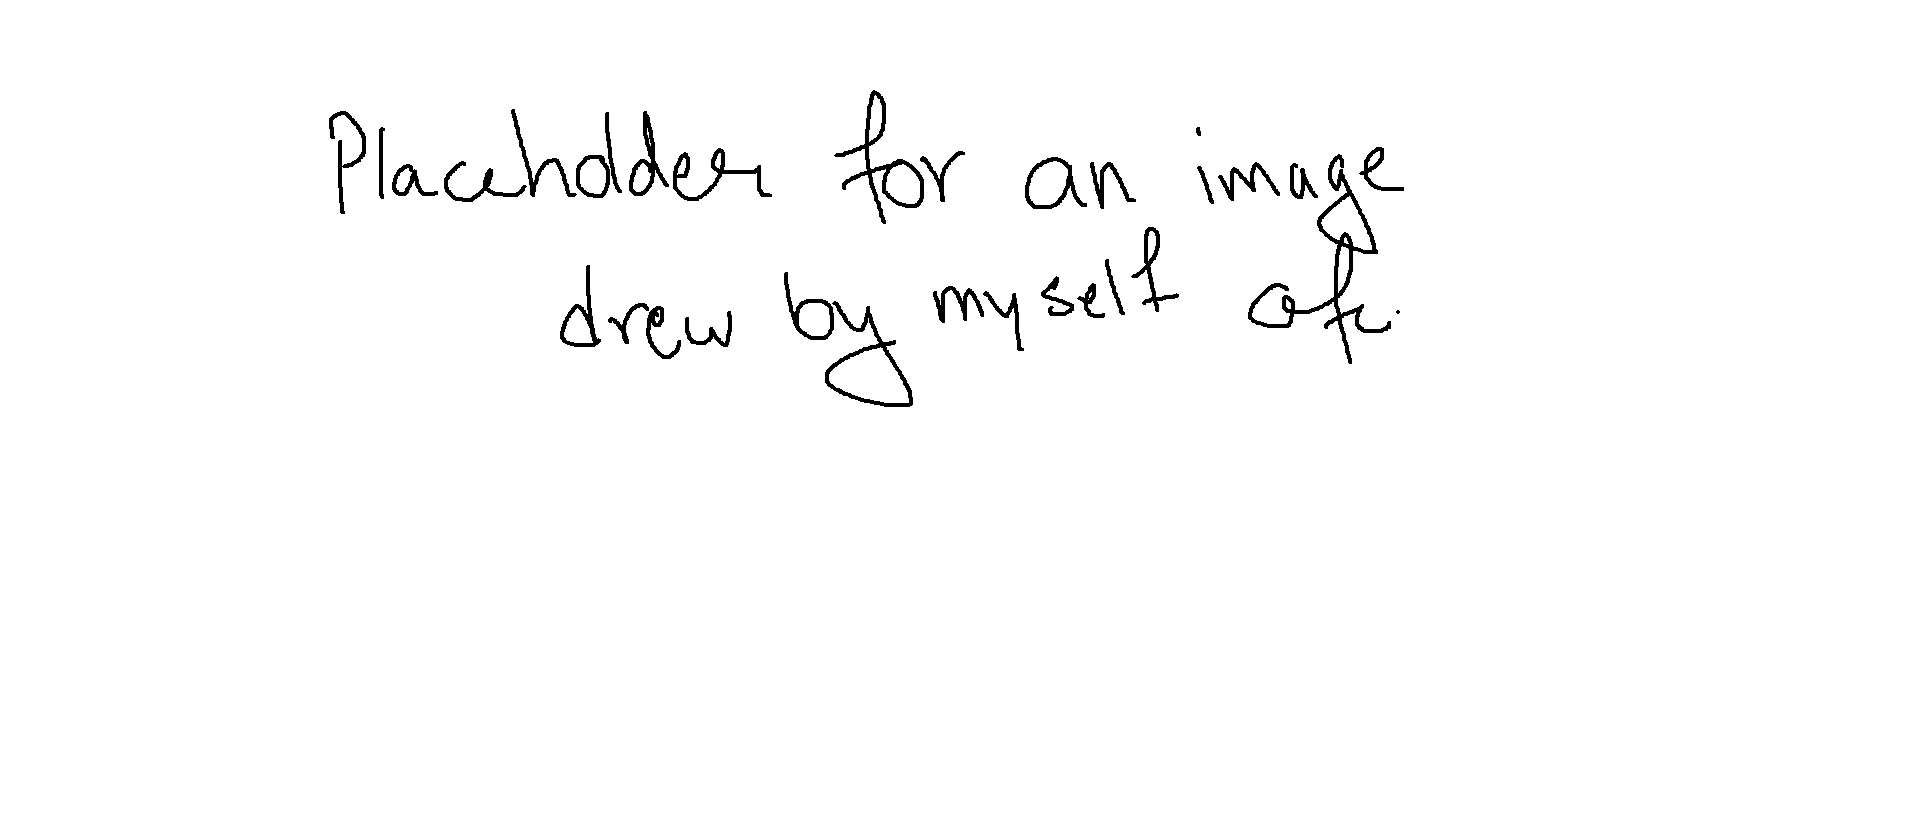 Placeholder for an image
drew by myself ofc.